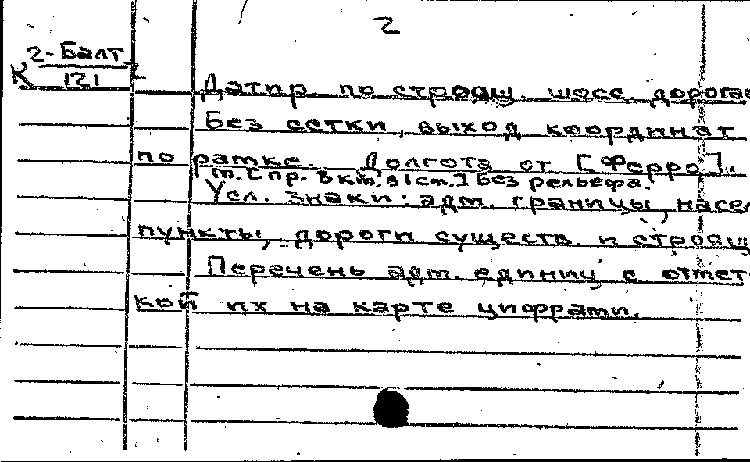 2
2-Балт
К 121
Датир. по строящ. шосс. дорогам
Без сетки, выход координат
по рамке. Долгота от [Ферро].
т. [пр. 3 км. в 1 см.] Без рельефа.
Усл. знаки: адм. границы, насел
пункты, дороги существ. и строящ
Перечень адм. единиц с отмет
кой их на карте цифрами.